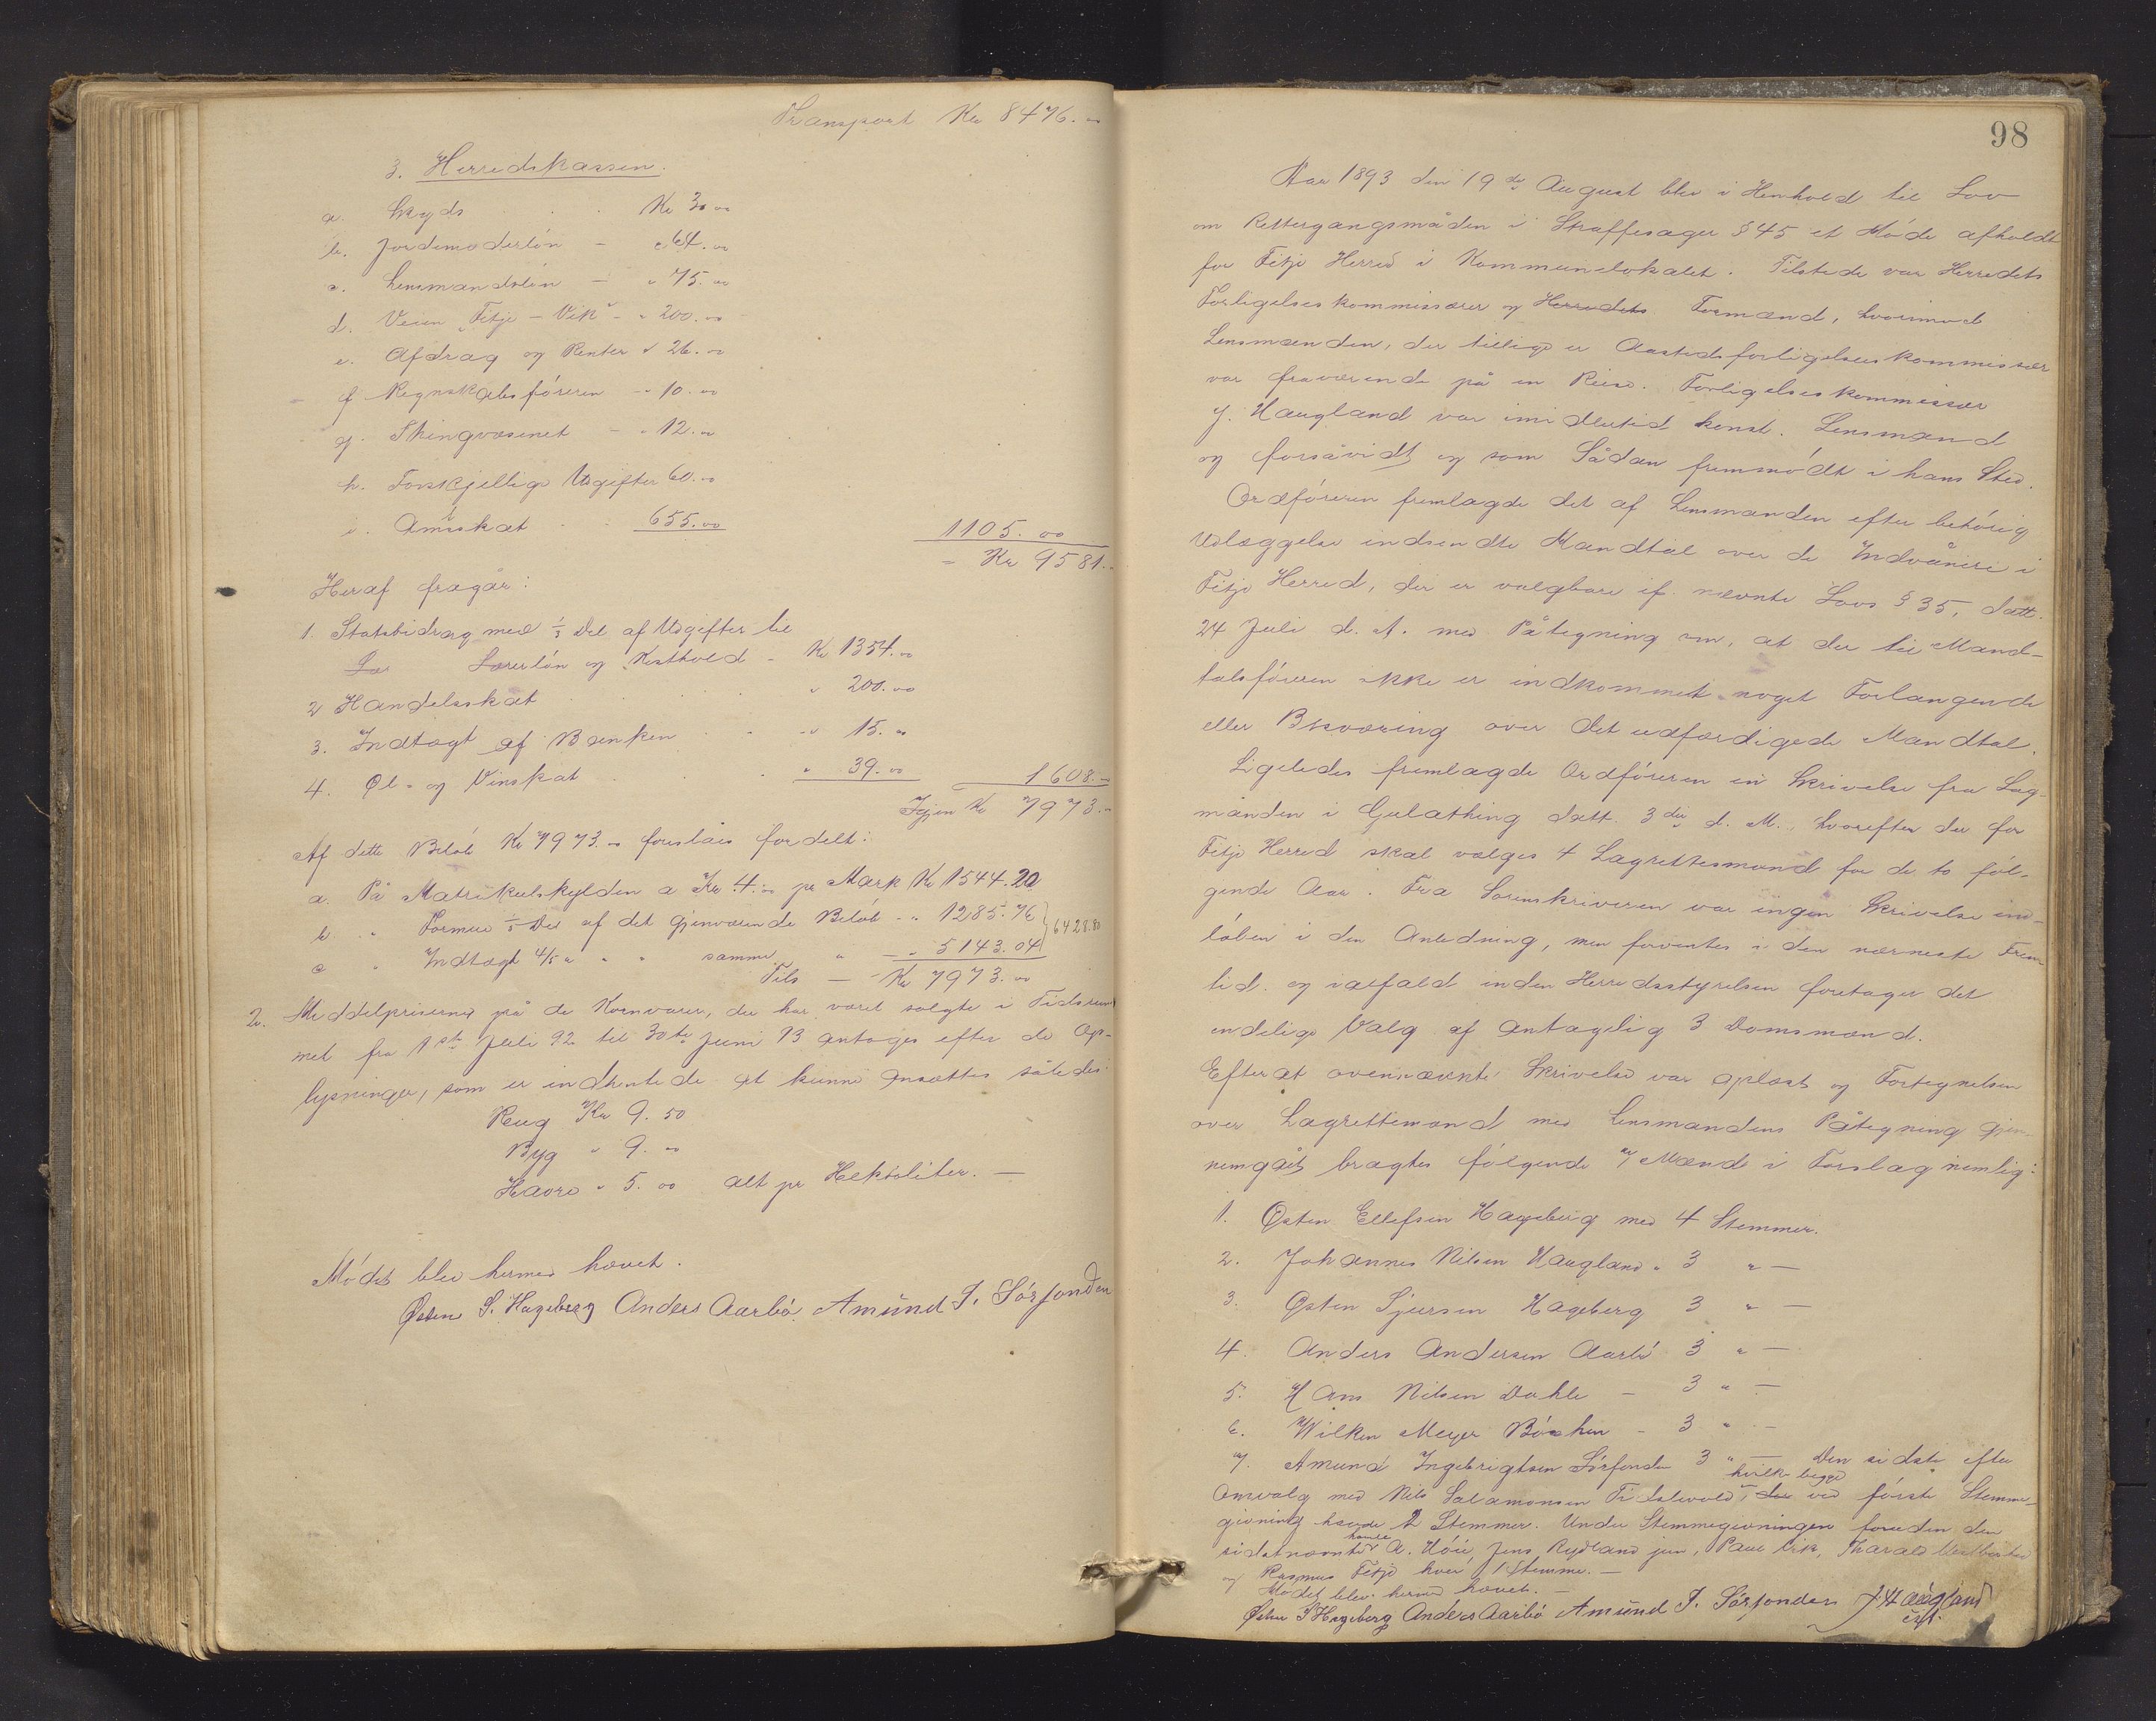 Transport Kr 8476.00
3. Herredskassen.
a. Skyds Kr 30.00
b. Jordemoderløn - " 64.00
c. Lensmandsløn - " 75.00
d. Veien "Fitje - Vik" - " 200.00
e. Afdrag og Renter " 26.00
f. Regnskabsføreren - " 10.00
g. Thingvæsenet - " 12.00
h. Forskjellige Udgifter 60.00
i. Amtsskat 655.00 1105.00
- Kr 9581.-
Heraf fragår:
1. Statsbidrag med 1/3 Del af Udgifter til
Lærerløn og Kosthold - Kr 1354.00
2 Handelsskat " 200.00
3. Indtægt af Banken - " 15.00
4. Øl- og Vinskat " 39.00 1608.-
Igjen Kr 7973.-
Af dette Beløb Kr 7973.00 foreslåes fordelt:
a. På Matrikulskylden a Kr 4.00 pr Mark Kr 1544.20
b. " Formue 1/5 Del af det gjenværende Beløb - " 1285.76 } 6428.80
c " Indtægt 4/5 " " " samme " - " 5143.04
Tils - Kr 7973.00
2. Middelpriserne på de Kornvarer, der har været solgte i Tidsrum-
met fra 1ste Juli 92 til 30te Juni 93 antages efter de Op-
lysninger, som er indhentede at kunne ansættes således:
Rug Kr 9.50
Byg " 9.00
Havre " 5.00 alt pr Hektoliter. -
Mødet blev hermed hævet.
Østen S. Hageberg Anders Aarbø. Amund I. Sørfonden
98
Aar 1893 den 19de August blev i Henhold til Lov
om Rettergangsmåden i Straffesager § 45 et Møde afholdt
for Fitje Herred i Kommunelokalet. Tilstede var Herredets
Forligelseskommissærer og Herredets Formænd, hvorimod
Lensmanden, der tillige er Aastedsforligelseskommissær
var fraværende på en Reise. Forligelseskommissær
J. Haugland var imidlertid konst. Lensmand
og forsåvidt og som Sådan fremmødt i hans Sted.
Ordføreren fremlagde det af Lensmanden efter behørig
Udlæggelse indsendte Mandtal over de Indvånere i
Fitje Herred, der er valgbare if. nævnte Lovs § 35, datt.
24 Juli d. A. med Påtegning om, at der til Mand-
talsføreren ikke er indkommet noget Forlangende
eller Besværing over det udfærdigede Mandtal.
Ligeledes fremlagde Ordføreren en Skrivelse fra Lag-
manden i Gulathing datt. 3die d. M., hvorefter der for
Fitje Herred skal vælges 4 Lagrettesmænd for de to føl-
gende Aar. Fra Sorenskriveren var ingen Skrivelse ind-
løben i den Anledning, men forventes i den nærmeste Frem-
tid og ialfald inden Herredsstyrelsen foretager det
endelige Valg af antagelig 3 Domsmænd.
Efterat ovennævnte Skrivelse var oplæst og Fortegnelsen
over Lagrettemænd med Lensmandens Påtegning gjen-
nemgået bragtes følgende 7 Mænd i Forslag nemlig:
1. Østen Ellefsen Hageberg med 4 Stemmer.
2. Johannes Nilsen Haugland " 3 " -
3. Østen Sjursen Hageberg 3 " -
4. Anders Andersen Aarbø 3 " -
5. Hans Nilsen Dahle - 3 " -
6. Wilken Meyer - 3 " -
7. Amund Ingebrigtsen Sørfonden 3 " - Den sidste efter
Omvalg med Nils Salamonsen hvilke begge ved første Stemme-
givning havde 2 Stemmer. Under Stemmegivningen foruden den
sidstnævnte havde A. Jens Rydland jun, Paul Vik, Tharald
og Rasmus Fitje hver 1 Stemme. -
Mødet blev hermed hævet. -
Østen S Hageberg Anders Aarbø Amund I. Sørfonden J. Haugland